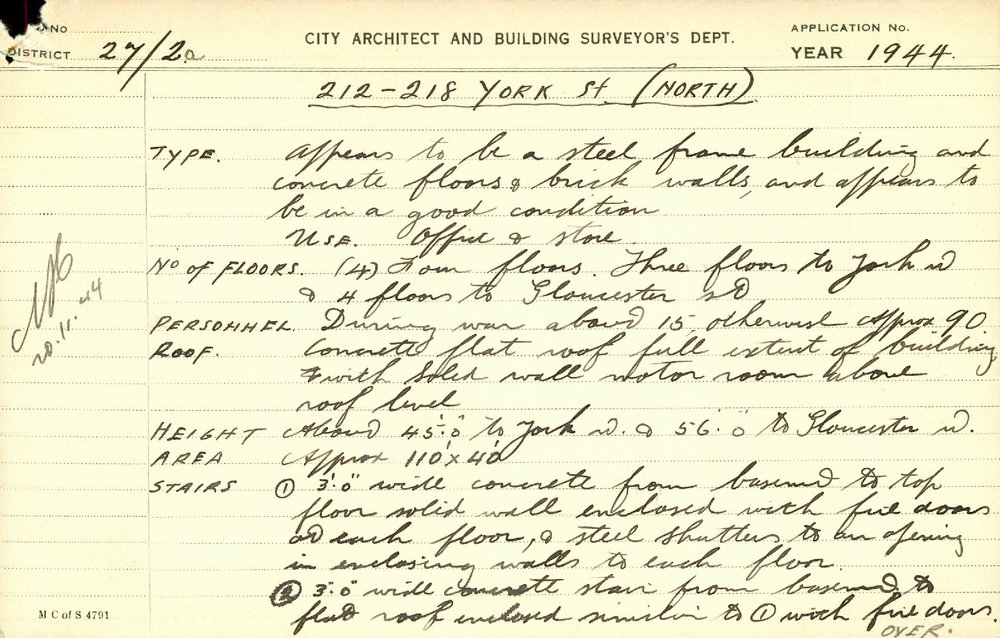 No
DISTRICT 27/2a
CITY ARCHITECT AND BUILDING SURVEYOR'S DEPT.
APPLICATION No.
YEAR 1944.
212-218 YORK St. (NORTH)
TYPE. Appears to be a steel frame building and
concrete floors & brick walls, and appears to
be in a good condition
USE. Office & store
No OF FLOORS. (4) Four floors. Three floors to York st
& 4 floors to Gloucester st
PERSONNEL. During war about 15, otherwise approx 90
ROOF. Concrete flat roof full extent of building
& with solid wall motor room above
roof level
HEIGHT About 45'.0" to York st. & 56'.0" to Gloucester st.
AREA Approx 110'x40'
STAIRS ① 3'.0" wide concrete from basemt to top
floor solid wall enclosed with fire doors
at each floor, & steel shutters to an opening
in enclosing walls to each floor.
② 3'.0" wide concrete stair from basemt to
flat roof enclosed similar to ① with fire doors.
OVER.
20.11.44
M C of S 4791